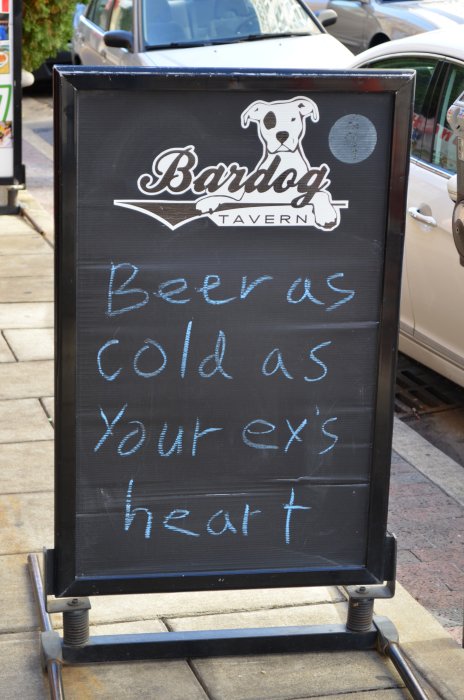 Bardog
TAVERN
Beer as
cold as
Your ex's
heart